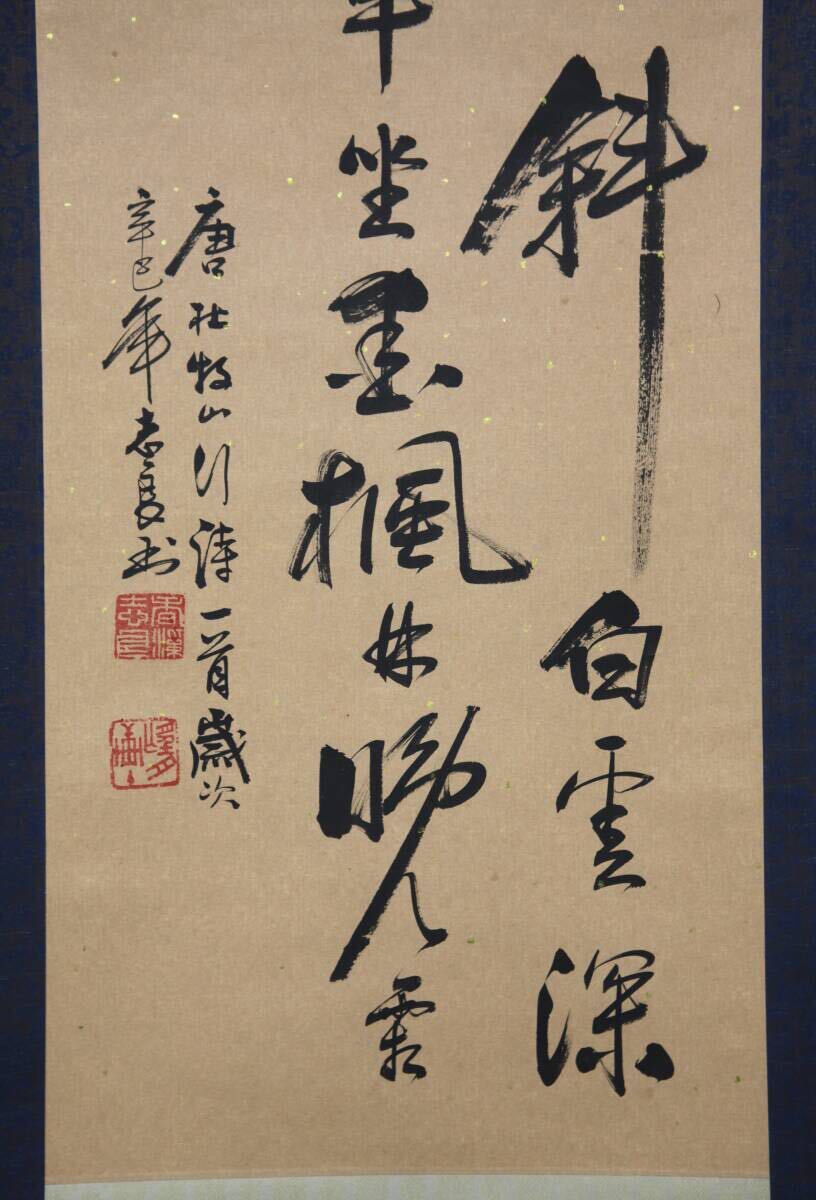 斜白雲深
車坐愛楓林晚霜
唐杜牧山行詩一首歲次
辛巳年志良书